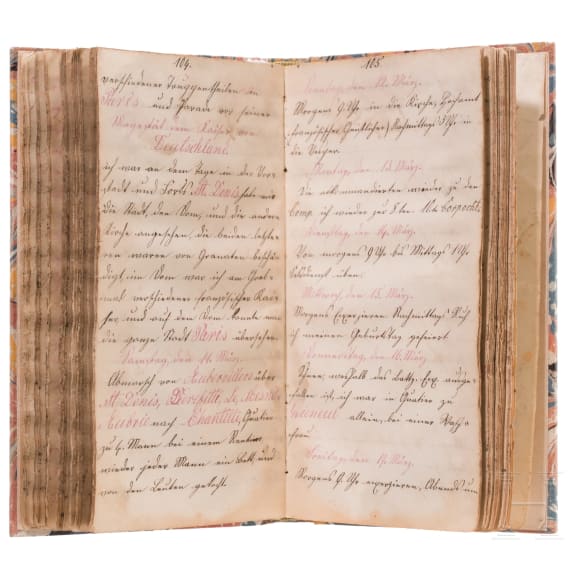 104.
verschiedener Truppentheilen in
Paris und Parade vor seiner
Magestät dem Kaiser von
Deutschland.
ich war an dem Tage in der Vor-
stadt und Forts St. Denis habe mir
die Stadt, den Dom, und die andere
Kirche angesehen, die beiden letzte-
ren waren von Granaten beschä-
digt, im Dom war ich am Grab-
mal verschiedener französischer Kai-
ser und auf dem Dom konnte man
die ganze Stadt Paris übersehen.
Samstag, den 11. März.
Abmarsch von Aubervilliers über
St. Denis,
nach Chantilli, Quatier
zu 4. Mann bei einem
wieder jeder Mann ein Bett und
von den Leuten gekocht.
105.
Sonntag, den 12. März.
Morgens 9. Uhr in die Kirche, Hochamt
französischer Geistlicher, Nachmittags 3 Uhr in
die Vesper.
Montag, den 13. März.
Die abkommandirten wieder zu den
Comp. ich wieder zur 8ten
Dienstag, den 14. März.
Von morgens 9 Uhr bis Mittags 1 Uhr
Felddienst üben.
Mittwoch, den 15. März.
Morgens Exerzieren Nachmittags
ich meinen Geburtstag gefeiert
Donnerstag, den 16. März.
weshalb das Batts. Exz. ausge-
fallen ist, ich war in Quatier zu
allein, bei einer Wasch-
frau.
Freitag, den 17. März.
Morgens 9. Uhr exerzieren, Abends um